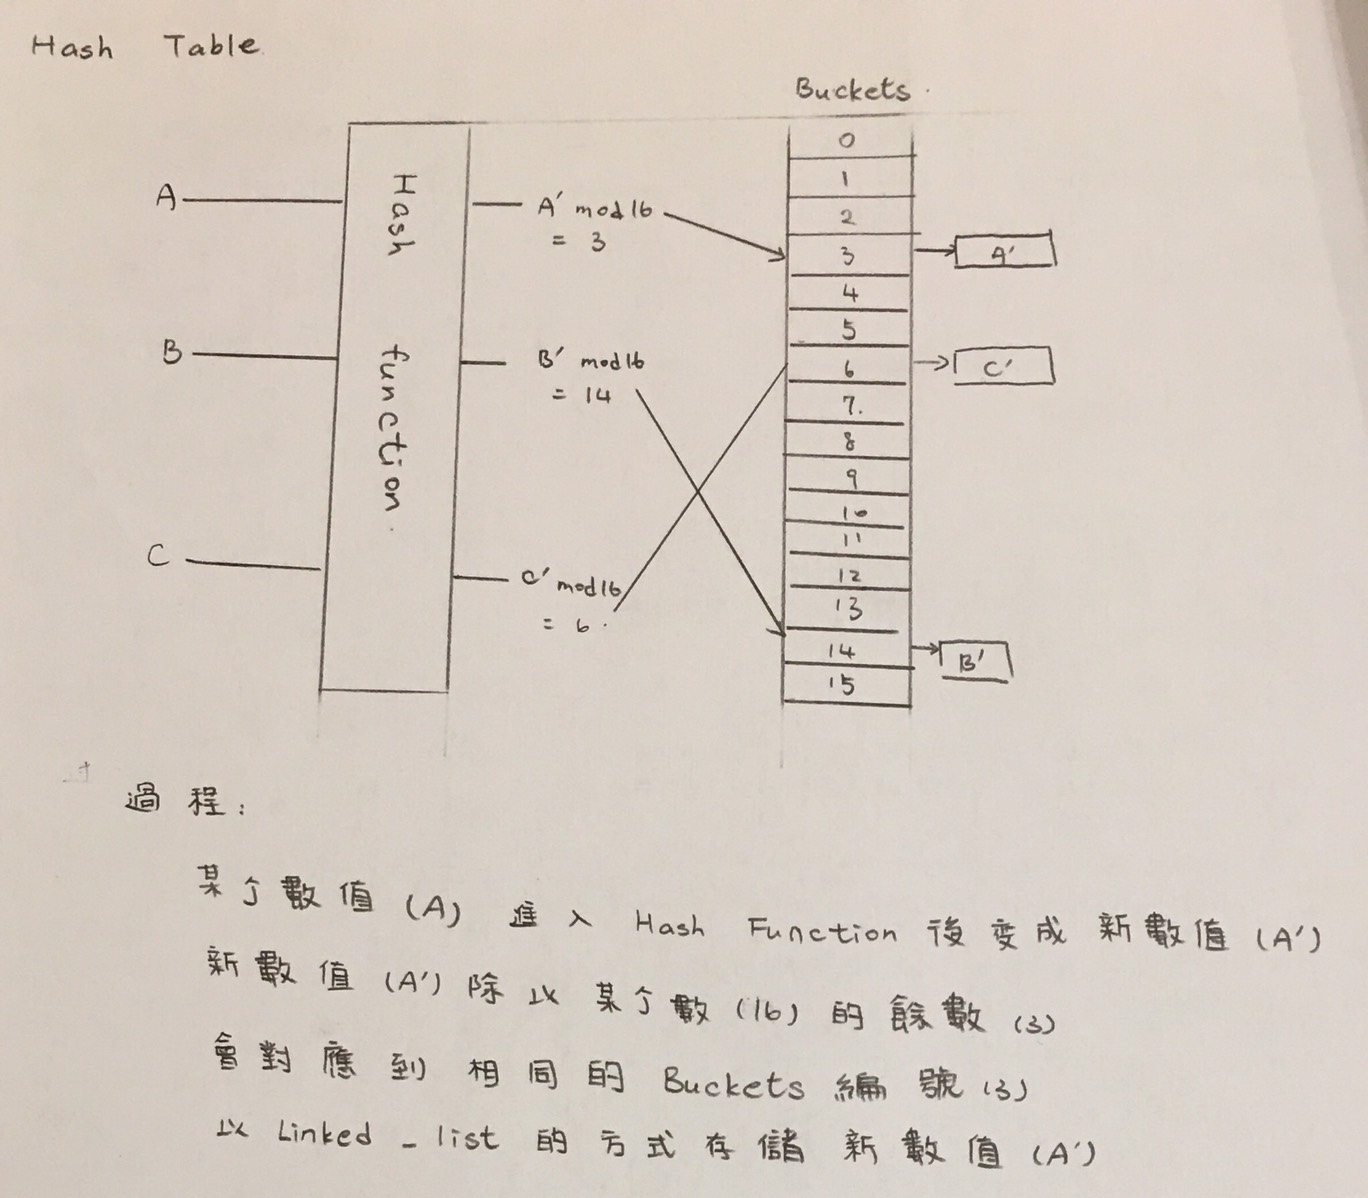 Hash Table
Buckets
A
B
C
Hash function
A' mod 16
= 3
B' mod 16
= 14
C' mod 16
= 6
0
1
2
3
4
5
6
7
8
9
10
11
12
13
14
15
A'
C'
B'
過程:
某個數值 (A) 進入 Hash Function 後变成 新數值 (A')
新數值 (A') 除以某個數 (16) 的餘數 (3)
會對應到 相同的 Buckets 編號 (3)
以 Linked_list 的方式存儲 新數值 (A')